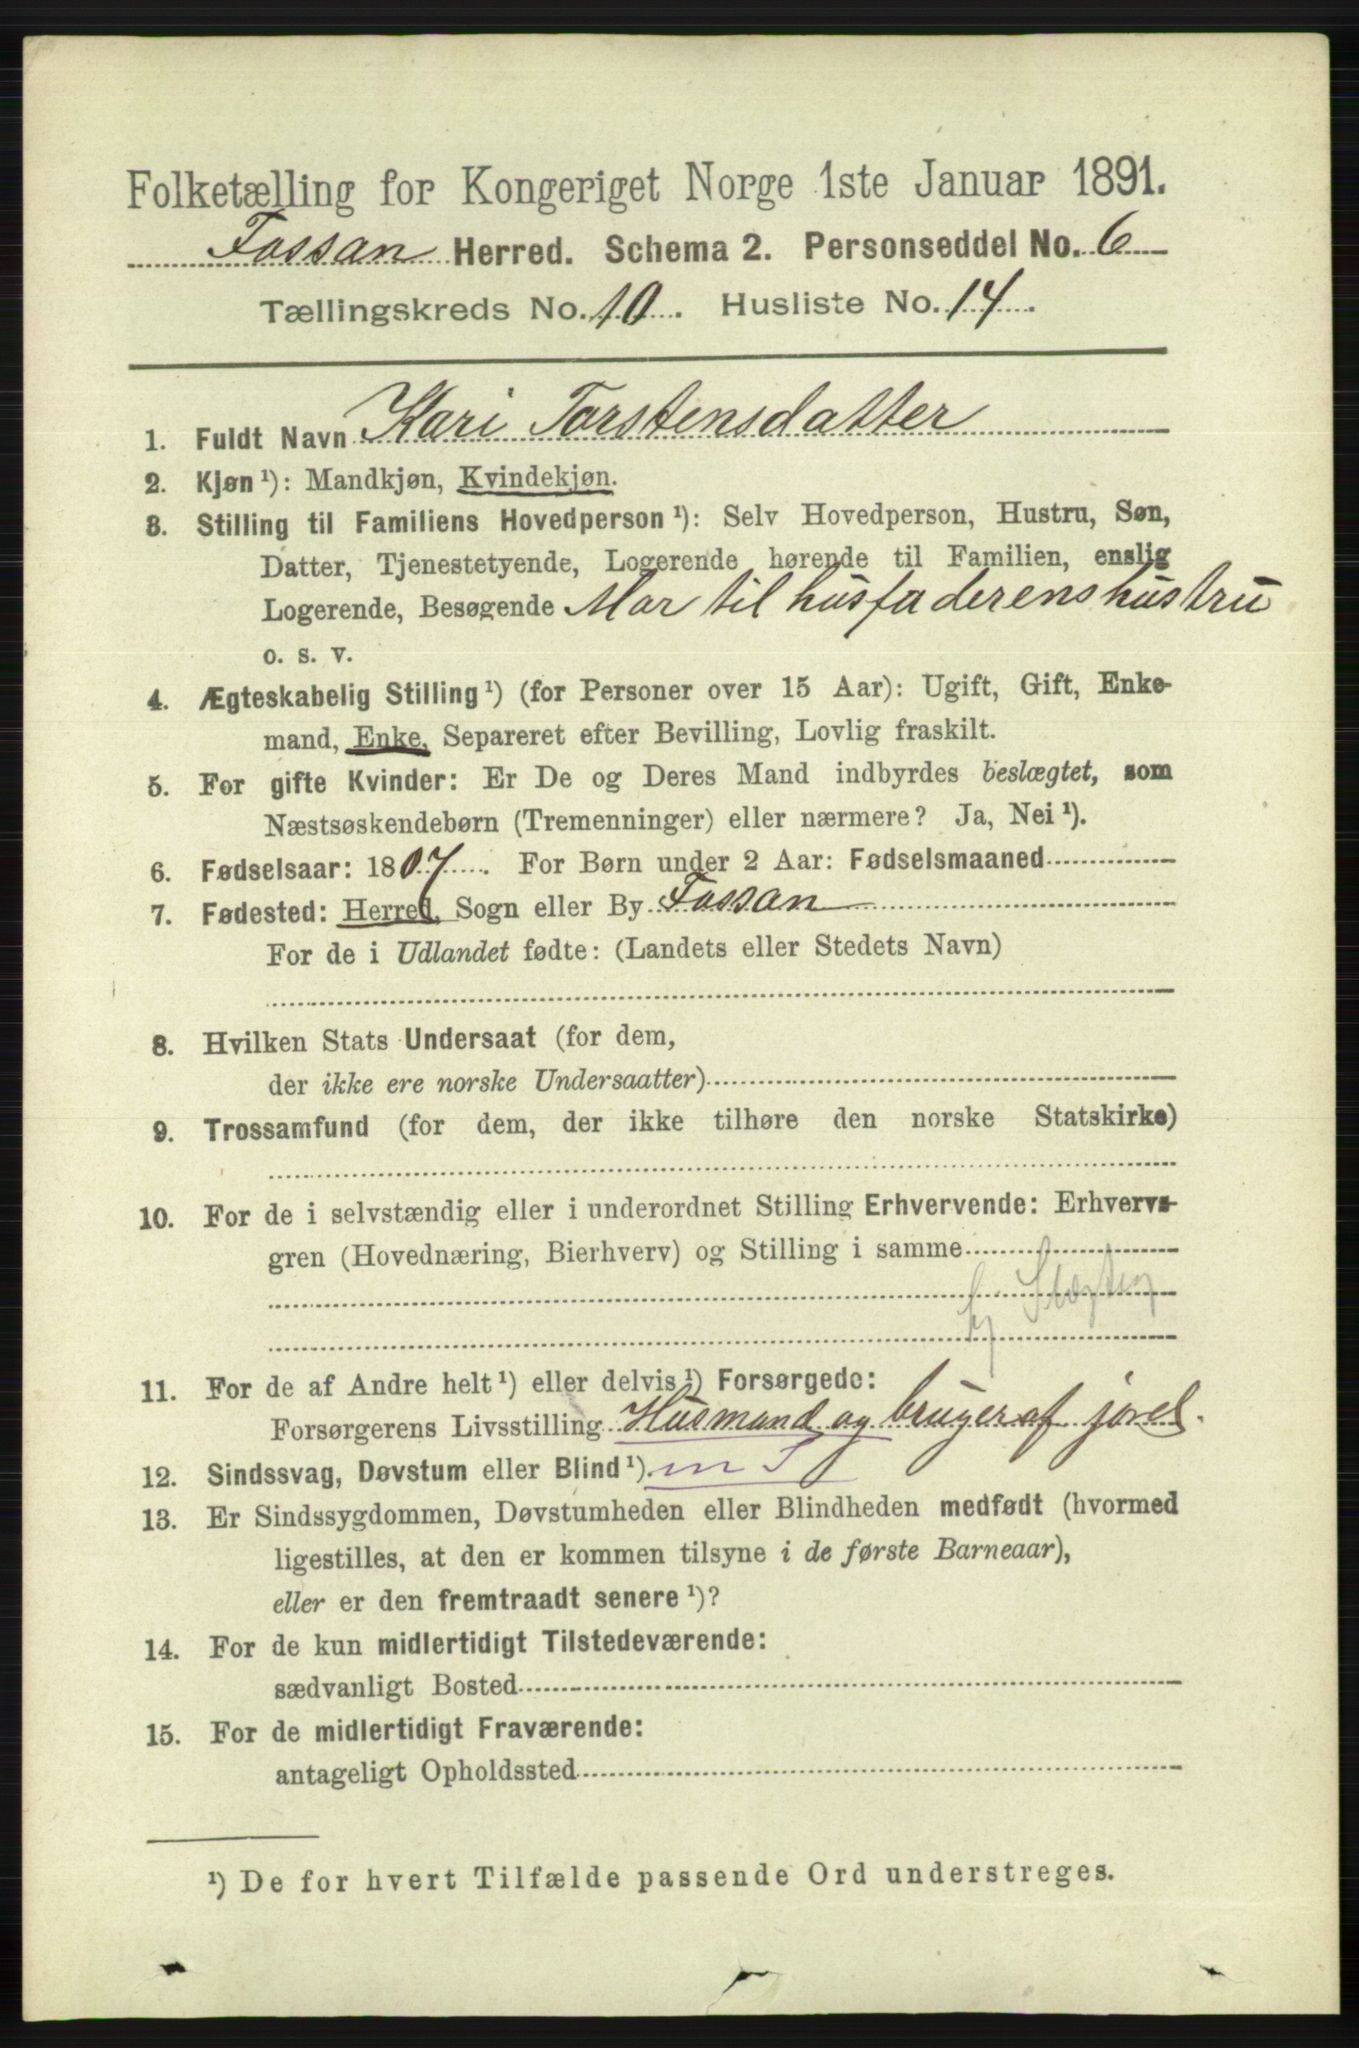 Folketælling for Kongeriget Norge 1ste Januar 1891.
Fossan Herred. Schema 2. Personseddel No. 6
Tællingskreds No. 10. Husliste No. 14.
1. Fuldt Navn Kari Torstensdatter
2. Kjøn ¹): Mandkjøn, Kvindekjøn.
3. Stilling til Familiens Hovedperson ¹): Selv Hovedperson, Hustru, Søn,
Datter, Tjenestetyende, Logerende hørende til Familien, enslig
Logerende, Besøgende Mor til husfaderens hustru
o. s. v.
4. Ægteskabelig Stilling ¹) (for Personer over 15 Aar): Ugift, Gift, Enke-
mand, Enke, Separeret efter Bevilling, Lovlig fraskilt.
5. For gifte Kvinder: Er De og Deres Mand indbyrdes beslægtet, som
Næstsøskendebørn (Tremenninger) eller nærmere? Ja, Nei ¹).
6. Fødselsaar: 1807. For Børn under 2 Aar: Fødselsmaaned
7. Fødested: Herred, Sogn eller By Fossan
For de i Udlandet fødte: (Landets eller Stedets Navn)
8. Hvilken Stats Undersaat (for dem,
der ikke ere norske Undersaatter)
9. Trossamfund (for dem, der ikke tilhøre den norske Statskirke)
10. For de i selvstændig eller i underordnet Stilling Erhvervende: Erhvervs-
gren (Hovednæring, Bierhverv) og Stilling i samme
11. For de af Andre helt ¹) eller delvis ¹) Forsørgede:
Forsørgerens Livsstilling Husmand og bruger af jord.
12. Sindssvag, Døvstum eller Blind ¹).
13. Er Sindssygdommen, Døvstumheden eller Blindheden medfødt (hvormed
ligestilles, at den er kommen tilsyne i de første Barneaar),
eller er den fremtraadt senere ¹)?
14. For de kun midlertidigt Tilstedeværende:
sædvanligt Bosted
15. For de midlertidigt Fraværende:
antageligt Opholdssted
¹) De for hvert Tilfælde passende Ord understreges.